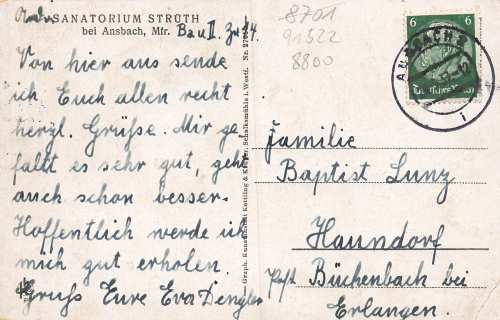 SANATORIUM STRÜTH
bei Ansbach, Mfr. Bau II. Zr. 54.
Von hier aus sende
ich Euch allen recht
herzl. Grüße. Mir ge-
fällt es sehr gut, geht
auch schon besser.
Hoffentlich werde ich
mich gut erholen.
Gruß Eure Eva Dengler
Graph. Kunstanstalt Kettling & Krüger, Schalksmühle i. Westf. Nr.
8701
91322
8800
6 6
Deutsches Reich
ANSBACH
Familie
Baptist Lunz
Haundorf
Post Büchenbach bei
Erlangen.